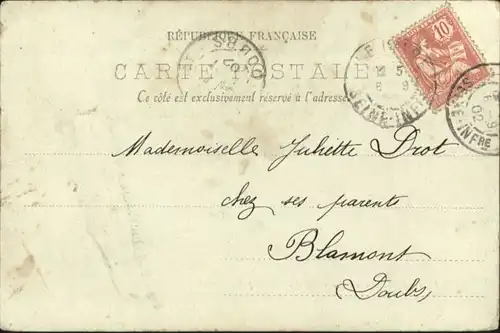 RÉPUBLIQUE FRANÇAISE
CARTE POSTALE
Ce côté est exclusivement réservé à l'adresse
10
DOUBS
SEINE-INFRE
02
Mademoiselle Juliette Drot
chez ses parents
Blamont
Doubs